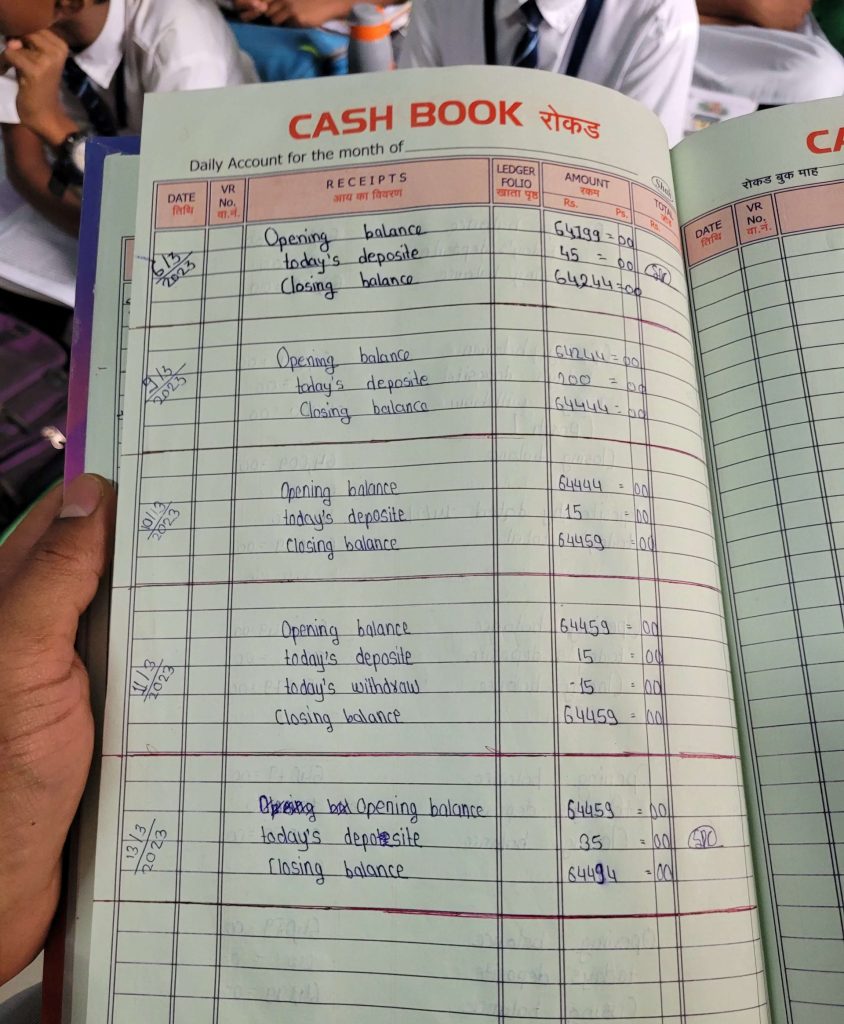 CASH BOOK रोकड
Daily Account for the month of
DATE तिथि VR No. वा.नं. RECEIPTS आय का विवरण LEDGER FOLIO खाता पृष्ठ AMOUNT रकम Rs. Ps. TOTAL Rs.
6/3/2023 Opening balance 64199=00
today's deposite 45 = 00
Closing balance 64244=00
9/3/2023 Opening balance 64244=00
today's deposite 200 = 00
Closing balance 64444=00
10/3/2023 Opening balance 64444 = 00
today's deposite 15 = 00
Closing balance 64459 =00
11/3/2023 Opening balance 64459 = 00
today's deposite 15 = 00
today's withdraw -15 = 00
Closing balance 64459 = 00
13/3/2023 Opening balance 64459 =00
today's deposite 35 =00
Closing balance 64494 =00
CA
रोकड बुक माह
DATE तिथि VR No. वा.नं.